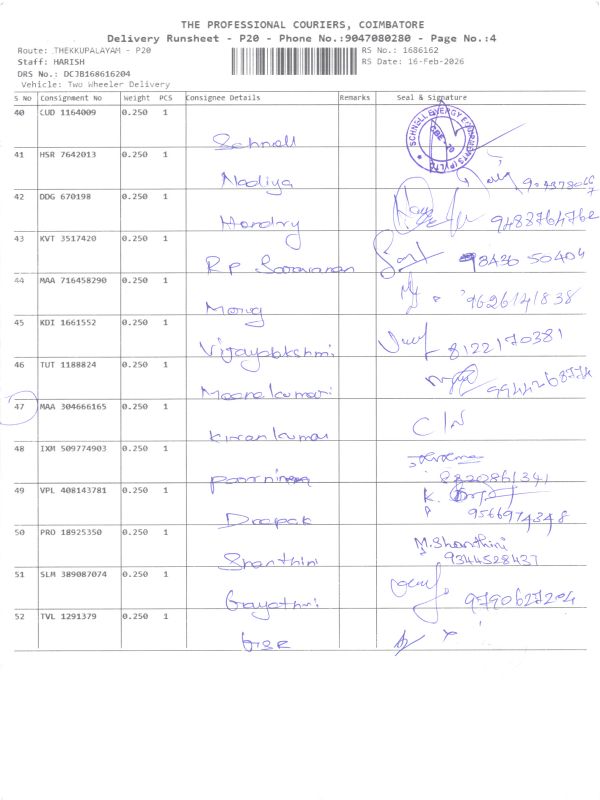 THE PROFESSIONAL COURIERS, COIMBATORE
Delivery Runsheet - P20 - Phone No.:9047080280 - Page No.:4
Route: THEKKUPALAYAM - P20 RS No.: 1686162
Staff: HARISH RS Date: 16-Feb-2026
DRS No.: DCJB168616204
Vehicle: Two Wheeler Delivery
S No Consignment No Weight PCS Consignee Details Remarks Seal & Signature
40 CUD 1164009 0.250 1
Schnell
41 HSR 7642013 0.250 1
Nadiya
42 DDG 670198 0.250 1
9488764762
43 KVT 3517420 0.250 1
R P Saravanan 98430 50404
44 MAA 716458290 0.250 1
9626141838
45 KDI 1661552 0.250 1
Vijayalakshmi 8122170381
46 TUT 1188824 0.250 1
Meenakumari
47 MAA 304666165 0.250 1
Kirankumar
48 IXM 509774903 0.250 1
Poornima 8820861341
49 VPL 408143781 0.250 1
Deepak 9566974348
50 PRO 18925350 0.250 1
Shanthini M.Shanthini
9344528437
51 SLM 389087074 0.250 1
Gayathri 9790627204
52 TVL 1291379 0.250 1